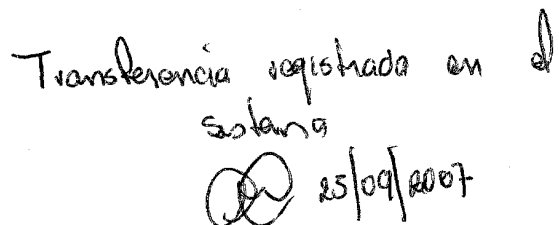 Transferencia registrada en el
sistema
25/09/2007